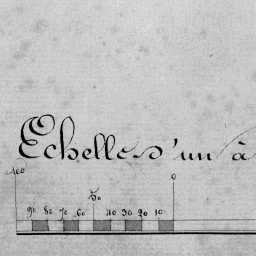 Echelle d'un à
100 50 0
90 80 70 60 40 30 20 10